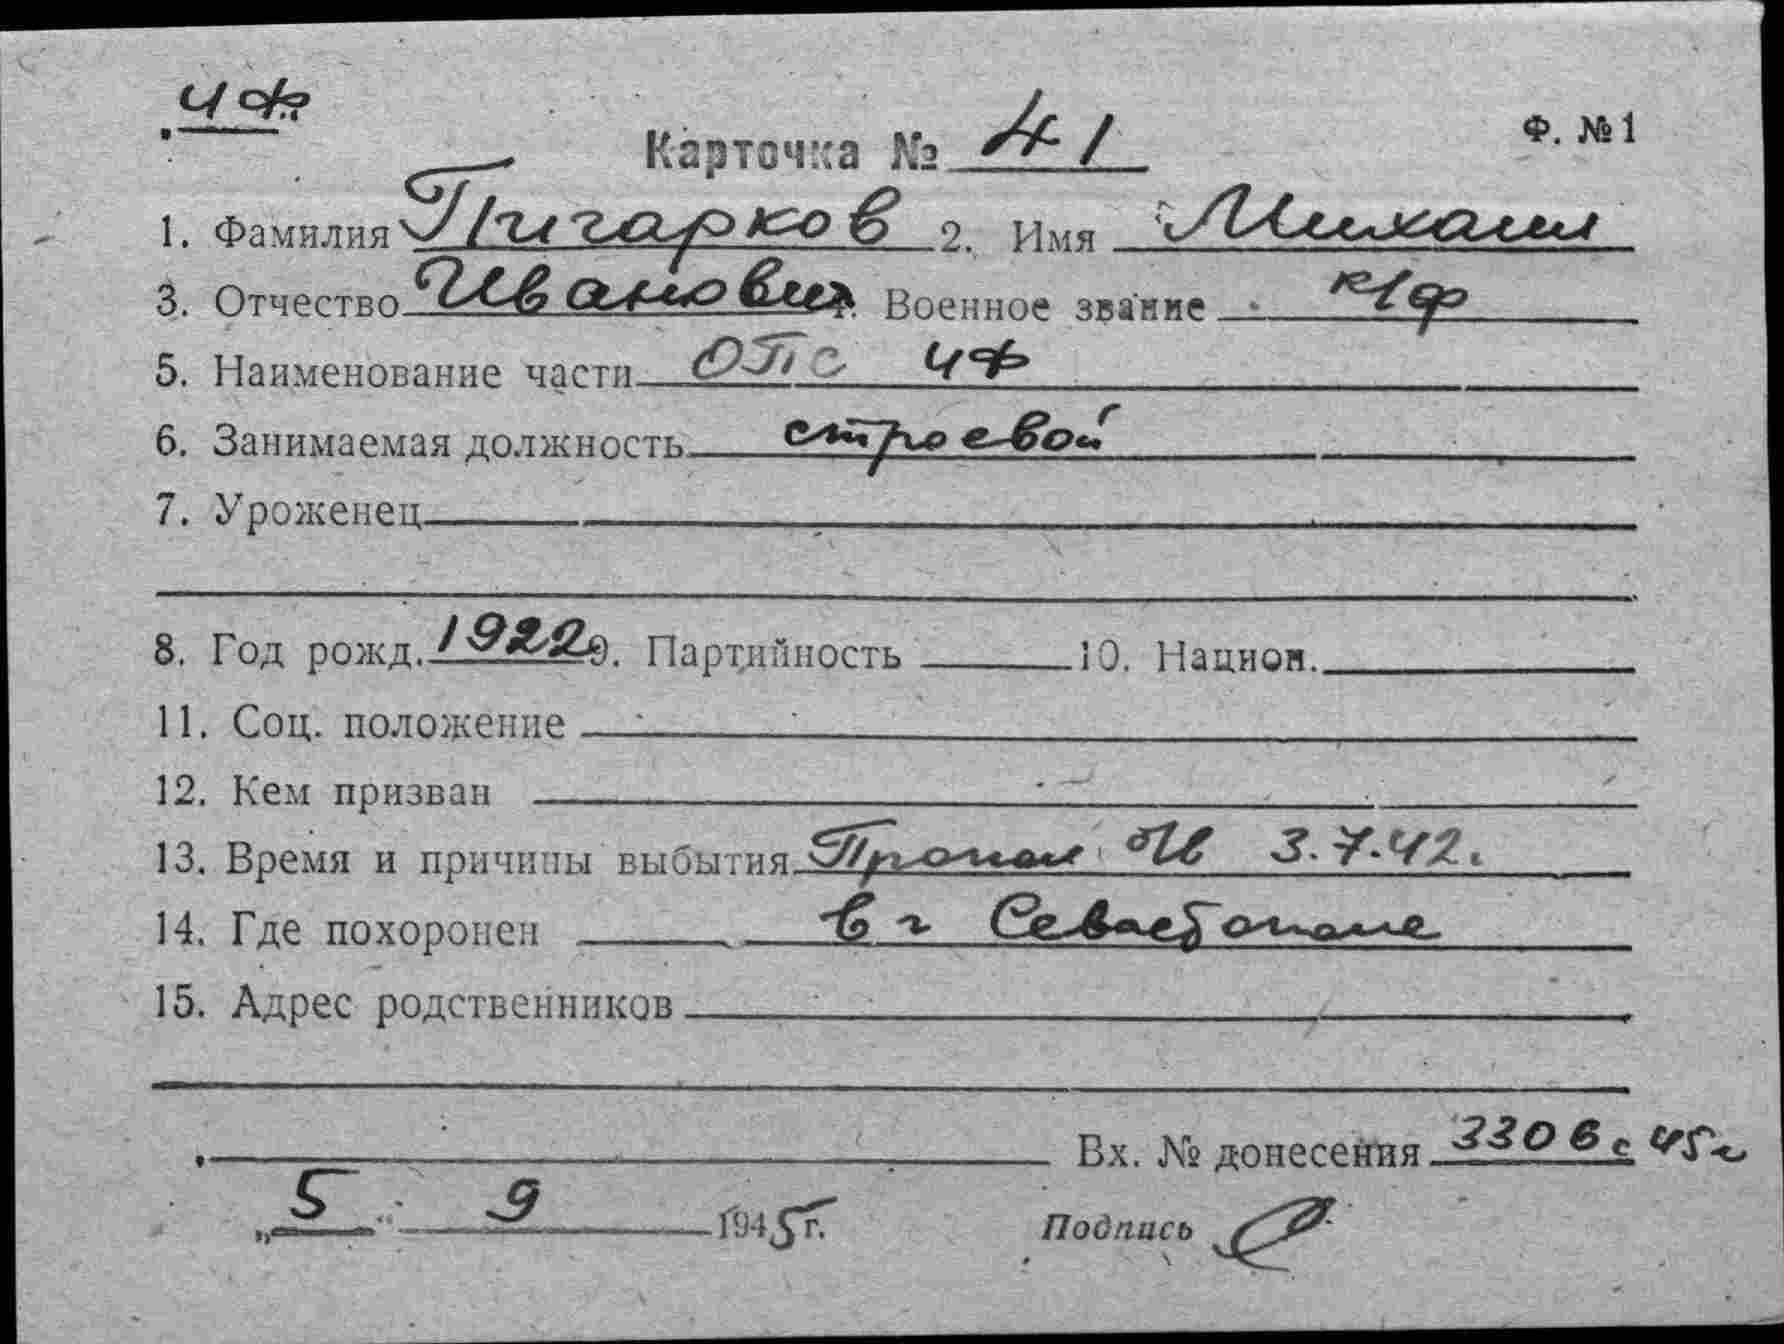 ЧФ.
Карточка № 41 Ф. № 1
1. Фамилия Пигарков 2. Имя Михаил
3. Отчество Иванович 4. Военное звание к/ф
5. Наименование части ОПС ЧФ
6. Занимаемая должность строевой
7. Уроженец
8. Год рожд. 1922 9. Партийность 10. Национ.
11. Соц. положение
12. Кем призван
13. Время и причины выбытия Пропал 3.7.42.
14. Где похоронен в г Севастополе
15. Адрес родственников
Вх. № донесения 3306 с 45г
„5“ 9 1945 г. Подпись